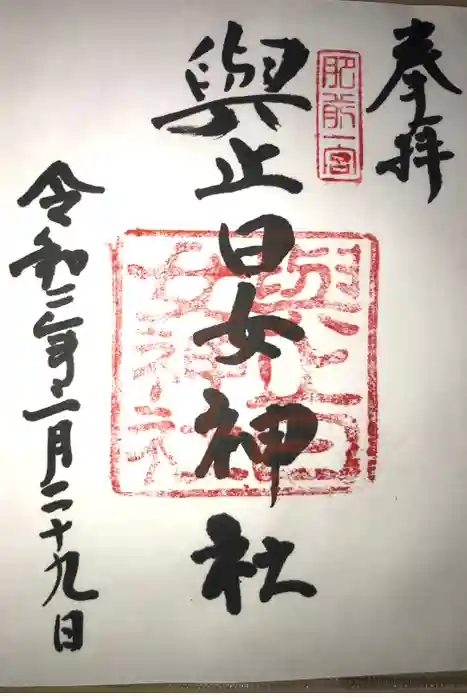 奉拝
肥前一宮
與止日女神社
與止日女神社
令和二年二月二十九日